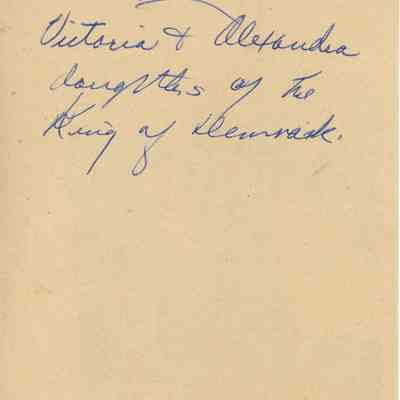 Victoria & Alexandra
daughters of the
King of Denmark.